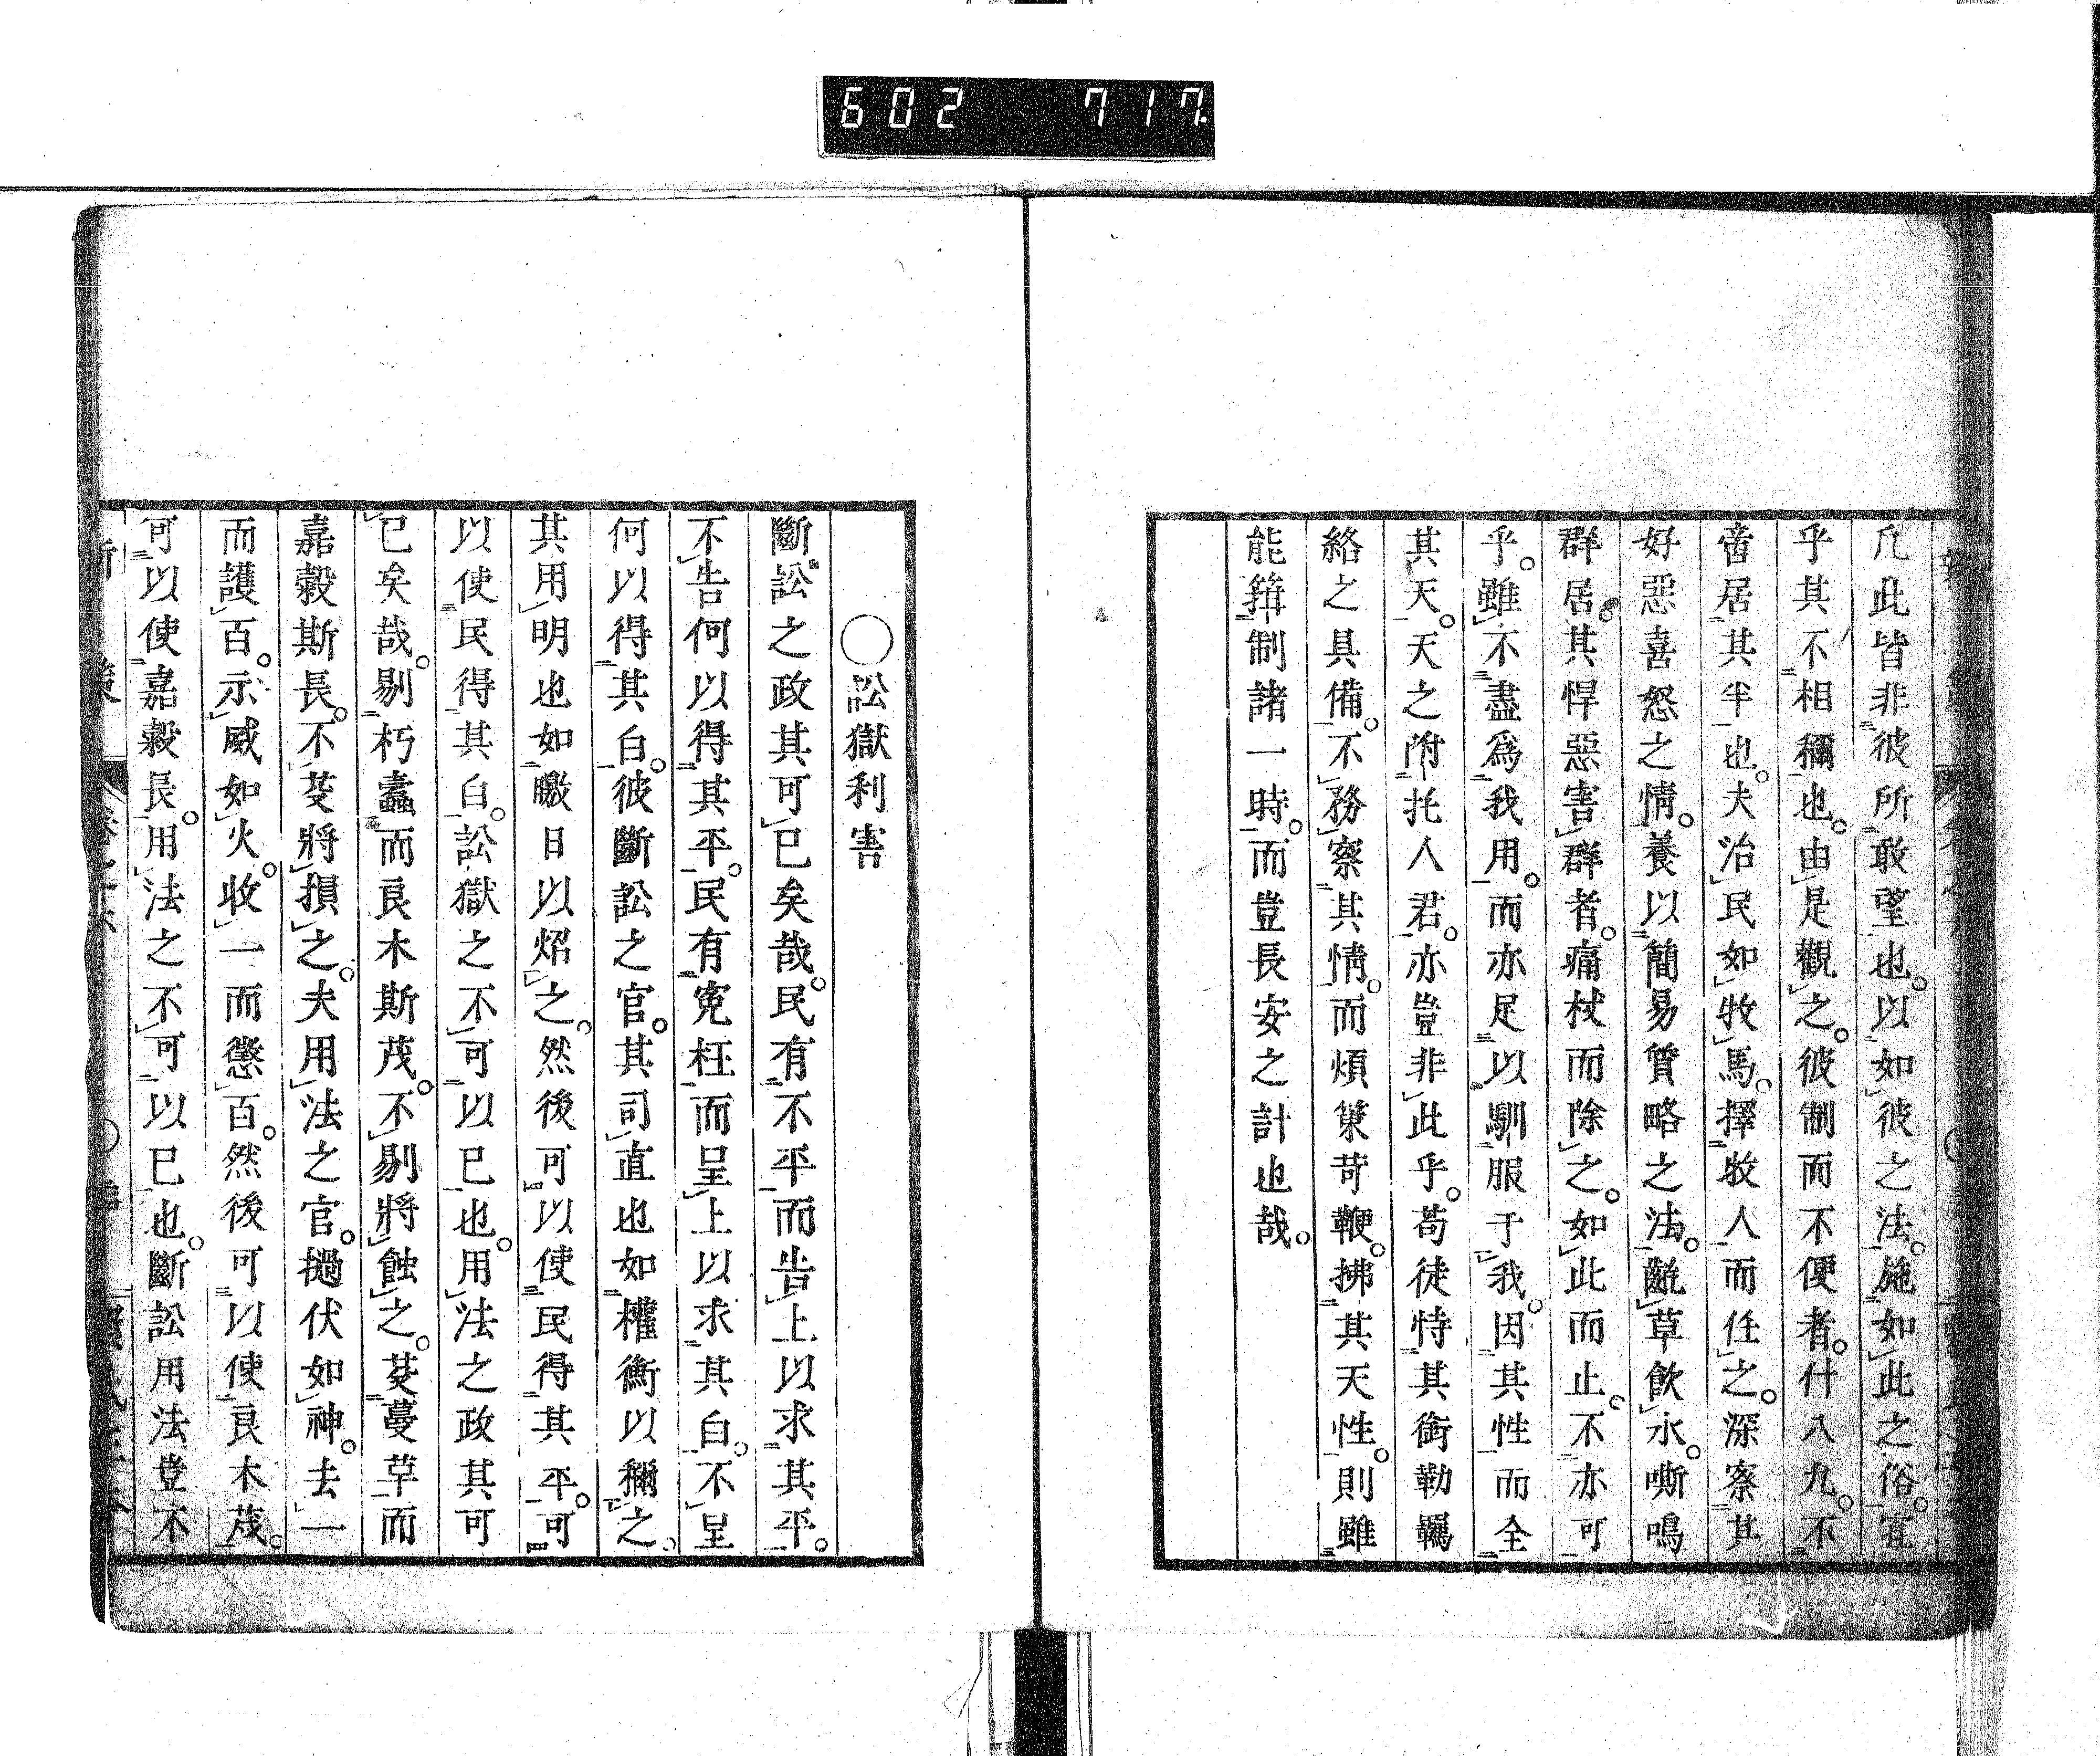 602 717.
凢此皆非彼所敢望也。以如彼之法。施如此之俗。宜
乎其不相稱也。由是觀之。彼制而不便者。什八九。不
啻居其半也。夫治民如牧馬。擇牧人而任之。深察其
好惡喜怒之情。養以簡易質略之法。齕草飲水。嘶鳴
群居。其悍惡害群者。痛杖而除之。如此而止。不亦可
乎。雖不盡爲我用。而亦足以馴服于我。因其性而全
其天。天之附托人君。亦豈非此乎。苟徒恃其銜勒羈
絡之具備。不務察其情。而煩策苛鞭。拂其天性。則雖
能箝制諸一時。而豈長安之計也哉。
〇訟獄利害
斷訟之政其可已矣哉。民有不平而告上以求其平。
不告何以得其平。民有寃枉而呈上以求其白。不呈
何以得其白。彼斷訟之官。其司直也如權衡以稱之。
其用明也如曒日以炤之。然後可以使民得其平。可
以使民得其白。訟獄之不可以已也。用法之政其可
已矣哉。剔朽蠹而良木斯茂。不剔將蝕之。芟蔓草而
嘉穀斯長。不芟將損之。夫用法之官。擿伏如神。去一
而護百。示威如火。收一而懲百。然後可以使良木茂。
可以使嘉穀長。用法之不可以已也。斷訟用法豈不